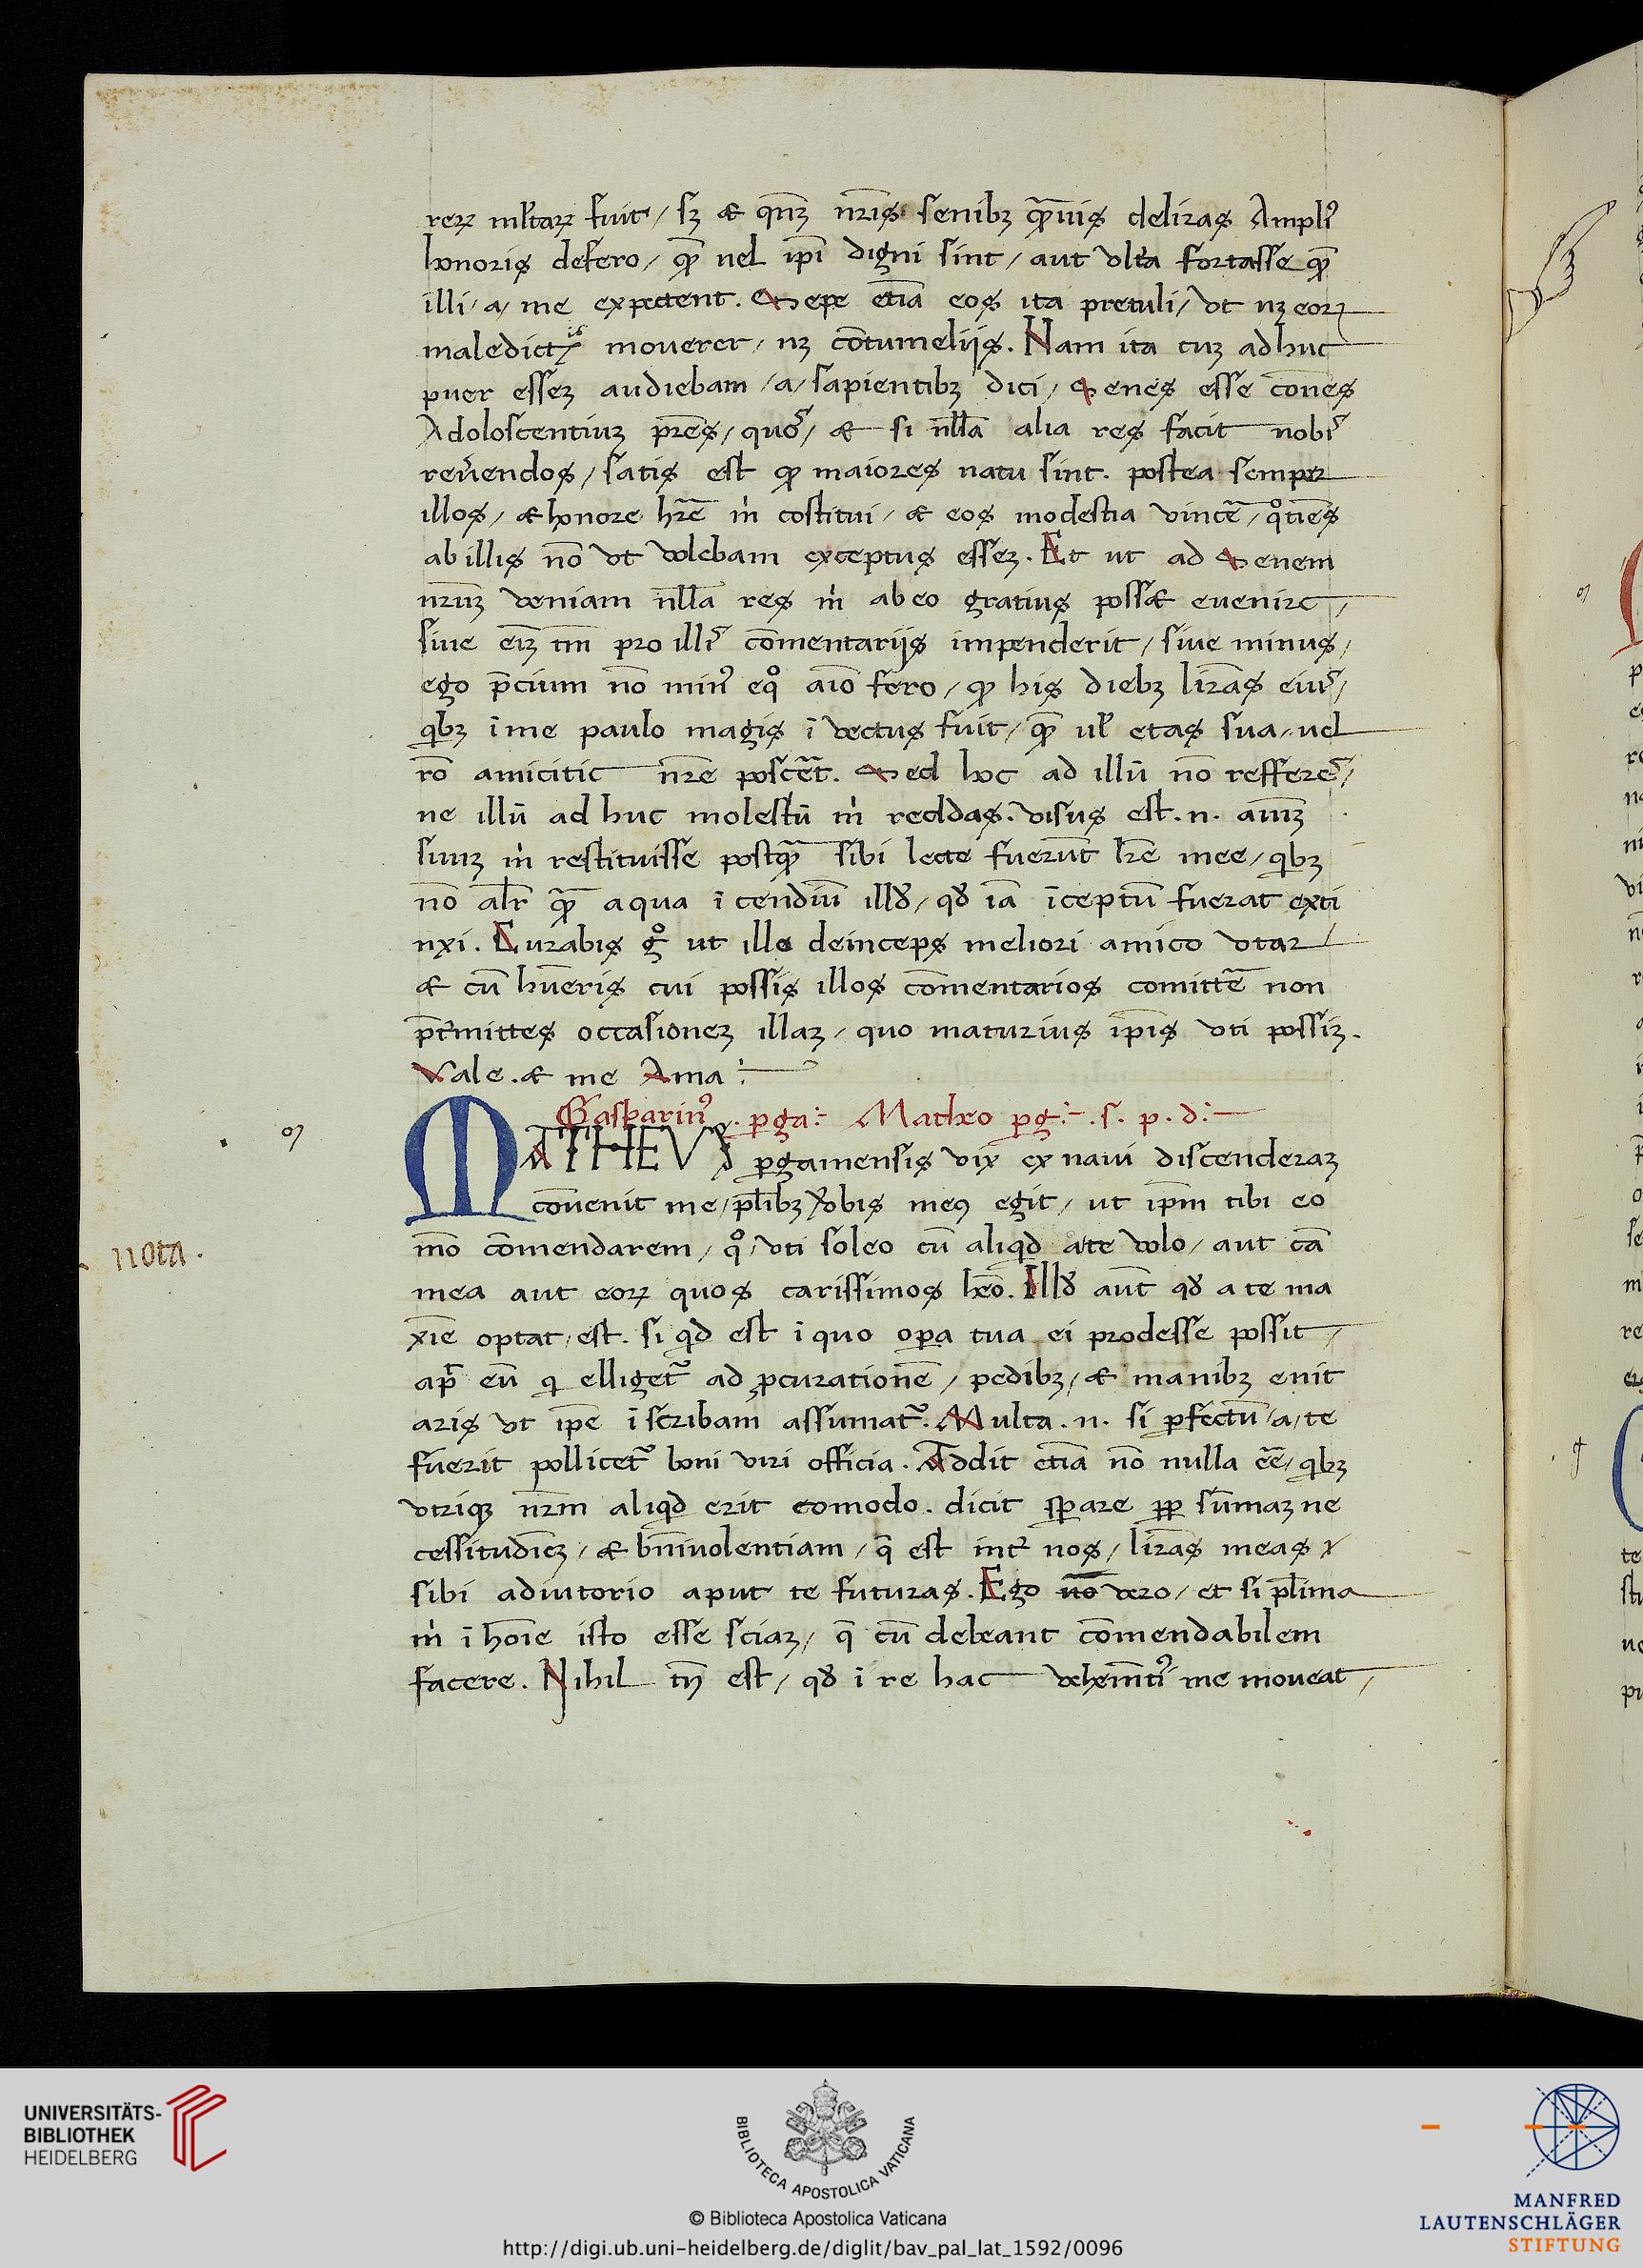 reꝝ ml̓taꝝ fuit / sꝫ & qm̄ nr̄is senibꝫ qͣ̄uis deliras Ampli᷒
honoris defero / qͣ̄ uel ip̄i digni sint / aut vlt̓a fortasse qͣ̄
illi / a / me expectent . Sepe etiā eos ita pretuli / vt nꝫ eoꝝ
maledictis mouerer / nꝫ cōtumelijs . Nam ita cuꝫ adhuc
puer esseꝫ audiebam / a / sapientibꝫ dici / Senes esse cōnes
Adoloscentiuꝫ pr̄es / quoˢ / & si nl̄la alia res facit nobiˢ
reu̓endos / satis est ꝙ maiores natu sint . postea semper
illos / & honore hr̄e m̍ costitui / & eos modestia vincē / qͦtiēs
ab illis nō vt volebam exceptus esseꝫ . Et ut ad Senem
nr̄uꝫ veniam nl̄la res m̍ ab eo gratius poss& euenire /
siue eiꝫ tm̄ pro illiˢ cōmentarijs impenderit / siue minus /
ego p̄cium nō min᷒ eqͦ aīo fero / ꝙ his diebꝫ lr̄as eiuˢ /
qbꝫ ī me paulo magis ī vectus fuit / qͣ̄ ul̓ etas sua / uel
rō amicitie nr̄e poscēt . Sed hoc ad illū nō refferes /
ne illū ad huc molestū m̍ reddas . visus est . n . aīuꝫ
suuꝫ m̍ restituisse postqͣ̄ sibi lecte fuerūt lr̄e mee / qbꝫ
nō al̓r qͣ̄ aqua ī cendiū illđ / qđ iā īceptū fuerat exti
nxi . Curabis gͦ ut illo deinceps meliori amico vtar /
& cū hūeris cui possis illos cōmentarios comittē non
p̄t̓mittes occasioneꝫ illaꝫ / quo maturius ip̄is vti possiꝫ .
Vale . & me Ama :
Gasparin᷒ . ꝑga :- Matheo ꝑg :- . s . p . d :-
MATHEVS ꝑgamensis vix ex naui discenderaꝫ
cōuenit me / pl̓ibꝫ v̓bis mecꝫ egit / ut ip̄m tibi eo
mō cōmendarem / qͦ / vti soleo cū aliqd a te volo / aut cā
mea aut eoꝝ quos carissimos hēo . Illđ aūt qđ a te ma
xīe optat / est . si qd est ī quo oꝑa tua ei prodesse possit /
ap̄ eū q elligetᷣ ad ꝓcurationē / pedibꝫ / & manibꝫ enit
aris vt ip̄e ī scribam assumatᷣ . Multa . n . si ꝑfectū / a / te
fuerit pollicetᷣ boni viri officia . Addit etiā nō nulla cē̄ / qbꝫ
vtriqꝫ nr̄m aliqd erit comodo . dicit sꝑare ꝓp sūmaꝫ ne
cessitudīeꝫ / & bn̄iuolentiam / q̄ est int̓ nos / lr̄as meas
sibi adiutorio aput te futuras . Ego nō vero / et si pl̓ima
m̍ ī hoīe isto esse sciaꝫ / q̄ cū debeant cōmendabilem
facere . Nihil tn̄ est / qđ ī re hac vehem̄ti᷒ me moueat /
nota .
UNIVERSITÄTS-
BIBLIOTHEK
HEIDELBERG
BIBLIOTECA APOSTOLICA VATICANA
© Biblioteca Apostolica Vaticana
http://digi.ub.uni-heidelberg.de/diglit/bav_pal_lat_1592/0096
MANFRED
LAUTENSCHLÄGER
STIFTUNG